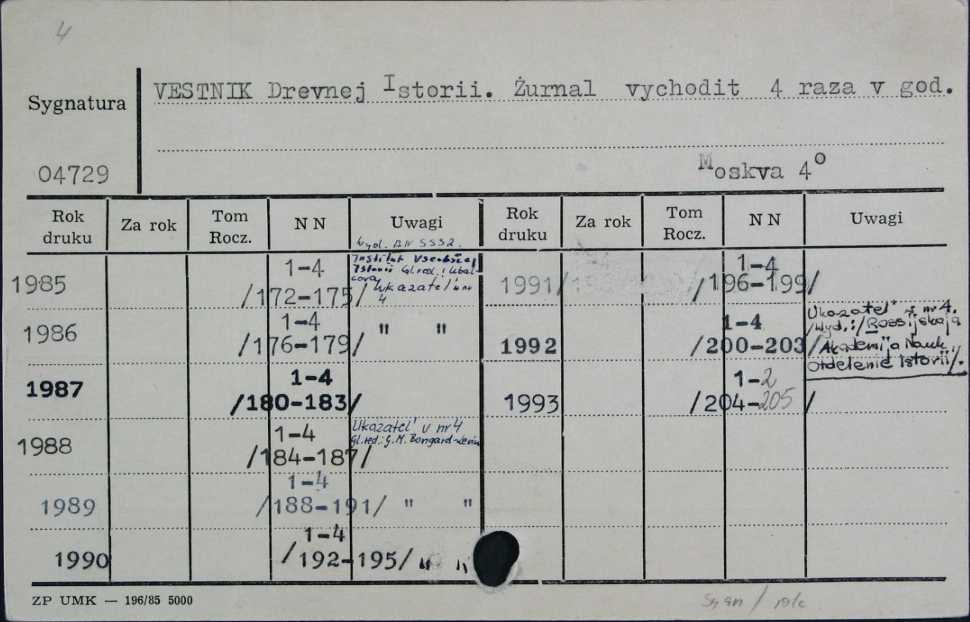 4
VESTNIK Drevnej Istorii. Żurnal vychodit 4 raza v god.
Sygnatura
04729
Moskva 4°
Rok druku Za rok Tom Rocz. N N Uwagi Rok druku Za rok Tom Rocz. N N Uwagi
Wyd. AN SSSR.
Institut Vseobščej
Istorii Gl. red.:
1985 1-4
/172-175/ Ukazatel' v nr
4
1991 1-4
/196-199/
1986 1-4
/176-179/ " "
1992 1-4
/200-203/
Ukazatel' v nr 4.
/Wyd.:/Rossijskaja
Akademija Nauk
Otdelenie Istorii/.
1987 1-4
/180-183/
1993 1-2
/204-205/
1988 1-4
/184-187/
Ukazatel' v nr 4
Gl. red.: G.M. Bongard-Levin
1989 1-4
/188-191/ " "
1990 1-4
/192-195/ " "
ZP UMK — 196/85 5000